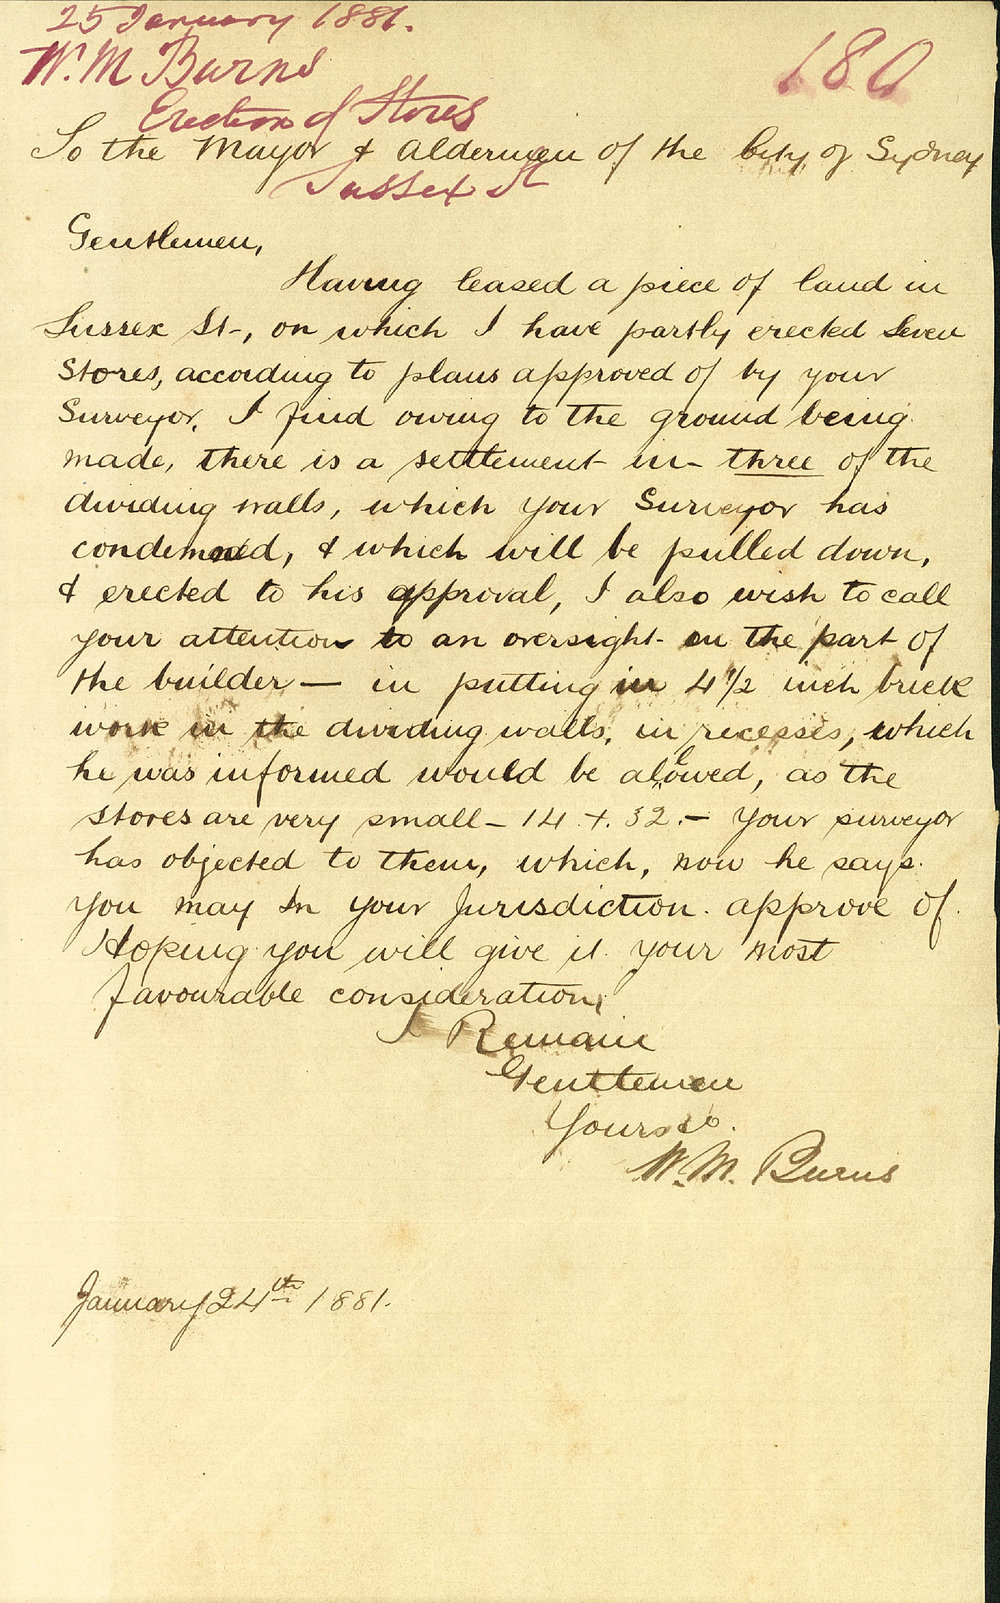 25 January 1881.
W. M Burns
180
Erection of Stores
To the Mayor & Aldermen of the City of Sydney
Sussex St
Gentlemen,
Having leased a piece of land in
Sussex St-, on which I have partly erected Seven
Stores, according to plans approved of by your
Surveyor, I find owing to the ground being
made, there is a settlement in three of the
dividing walls, which your Surveyor has
condemned, & which will be pulled down,
& erected to his approval, I also wish to call
your attention to an oversight on the part of
the builder — in putting in 4 1/2 inch brick
work in the dividing walls, in recesses, which
he was informed would be alowed, as the
stores are very small - 14 + 32. - Your surveyor
has objected to them, which, now he says
you may In your Jurisdiction. approve of.
Hoping you will give it your most
favourable consideration,
I Remain
Gentlemen
Yours &c.
W. M. Burns
January 24th 1881.